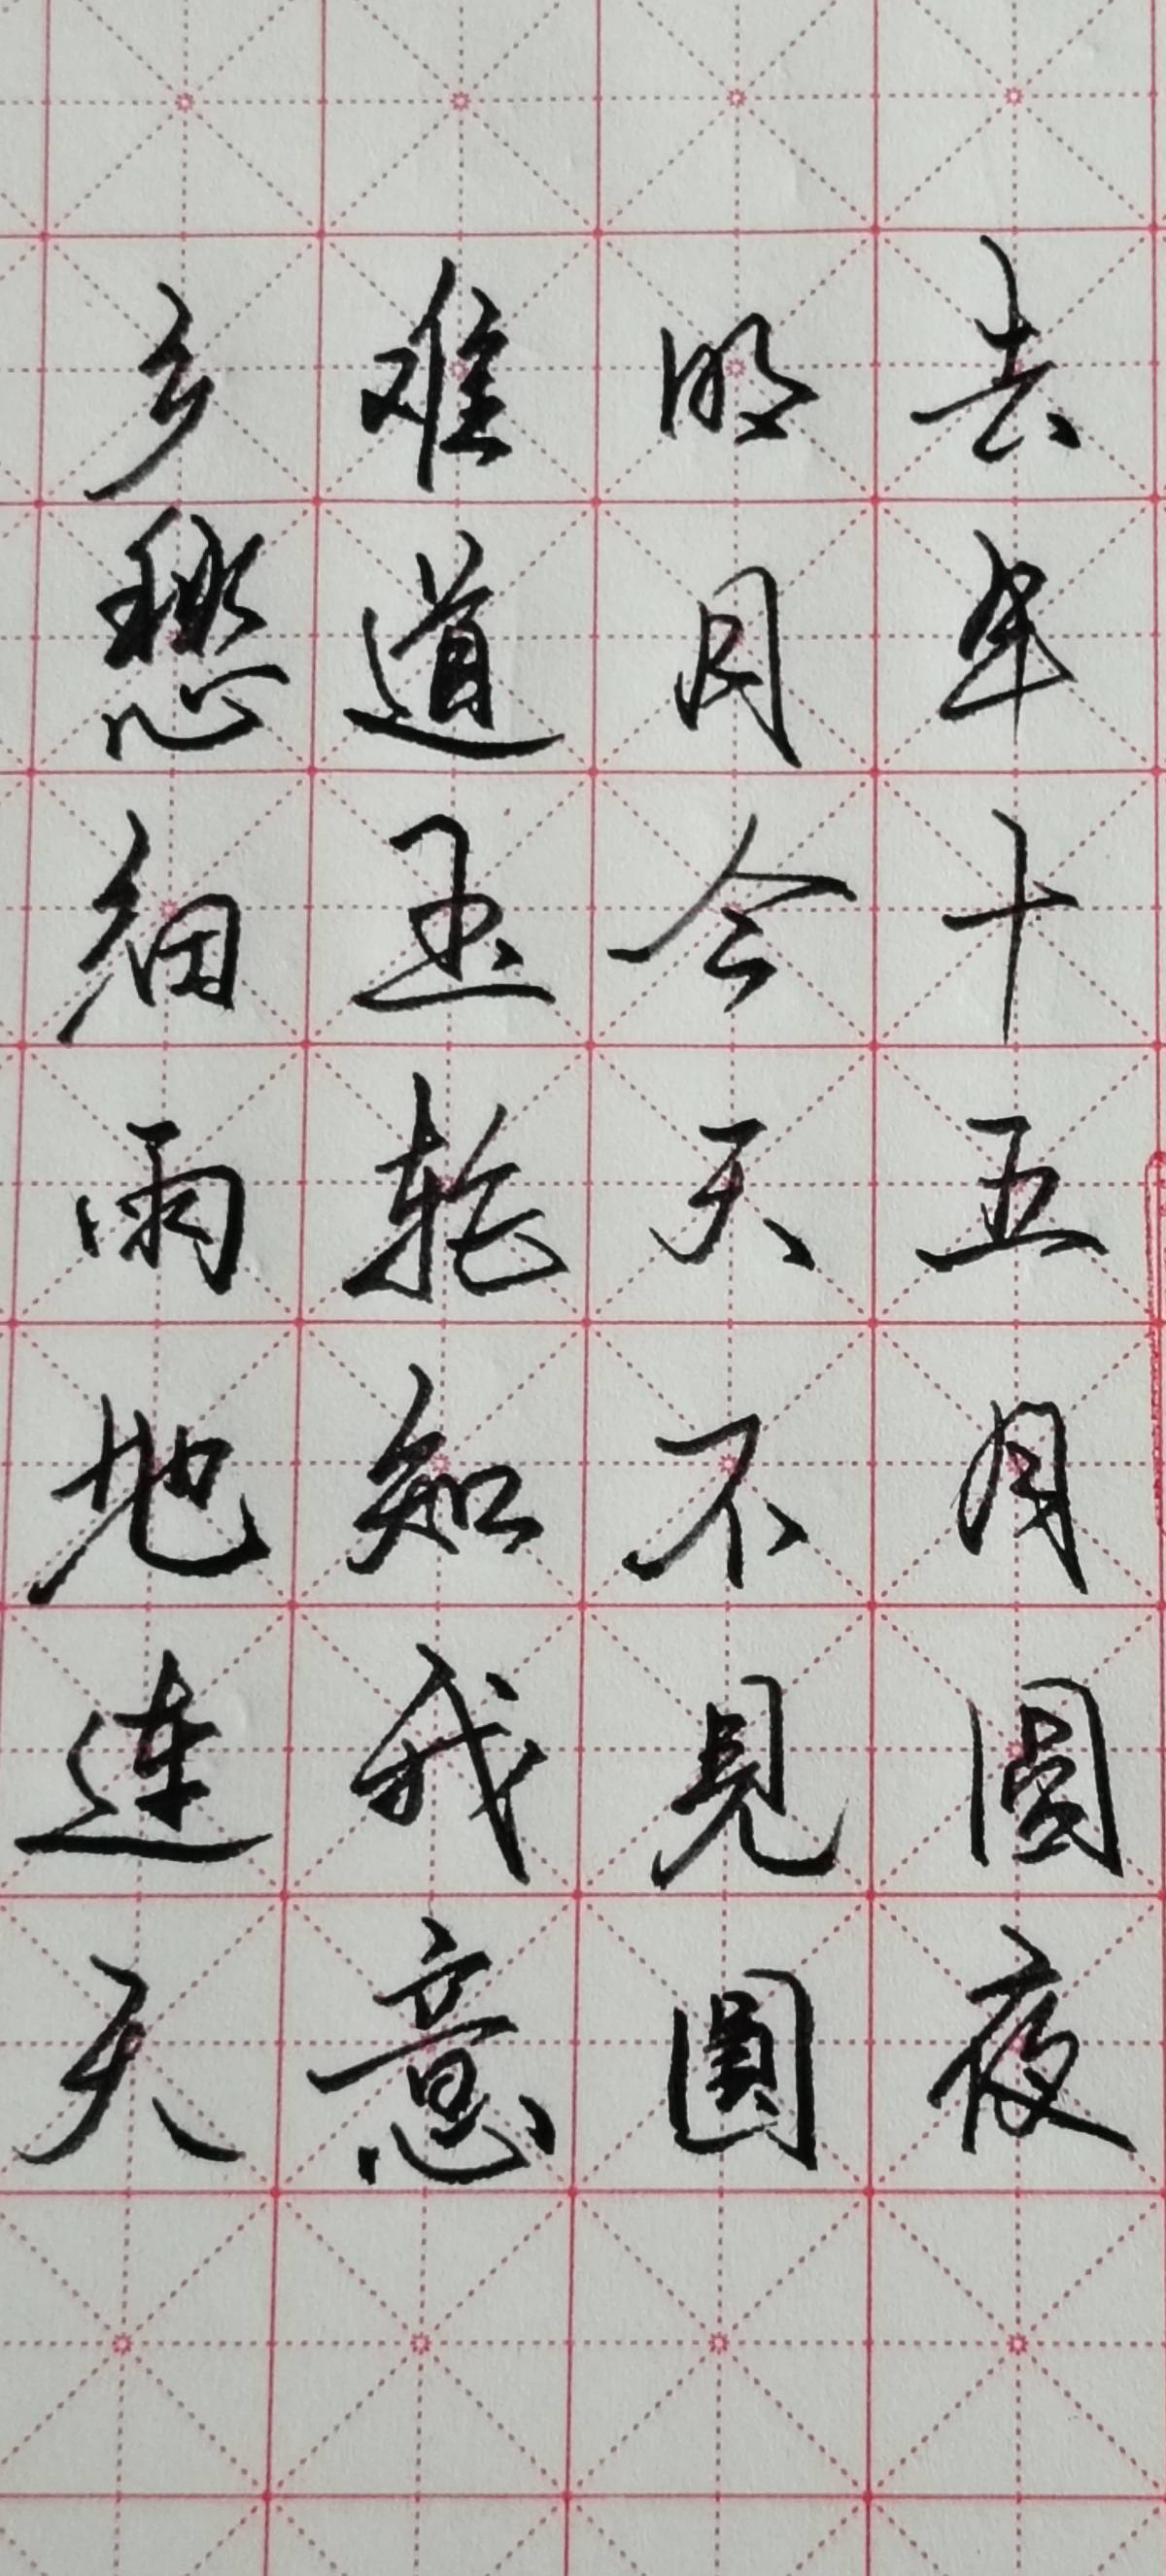 去年十五月圆夜
明月今天不见圆
难道玉轮知我意
乡愁细雨地连天